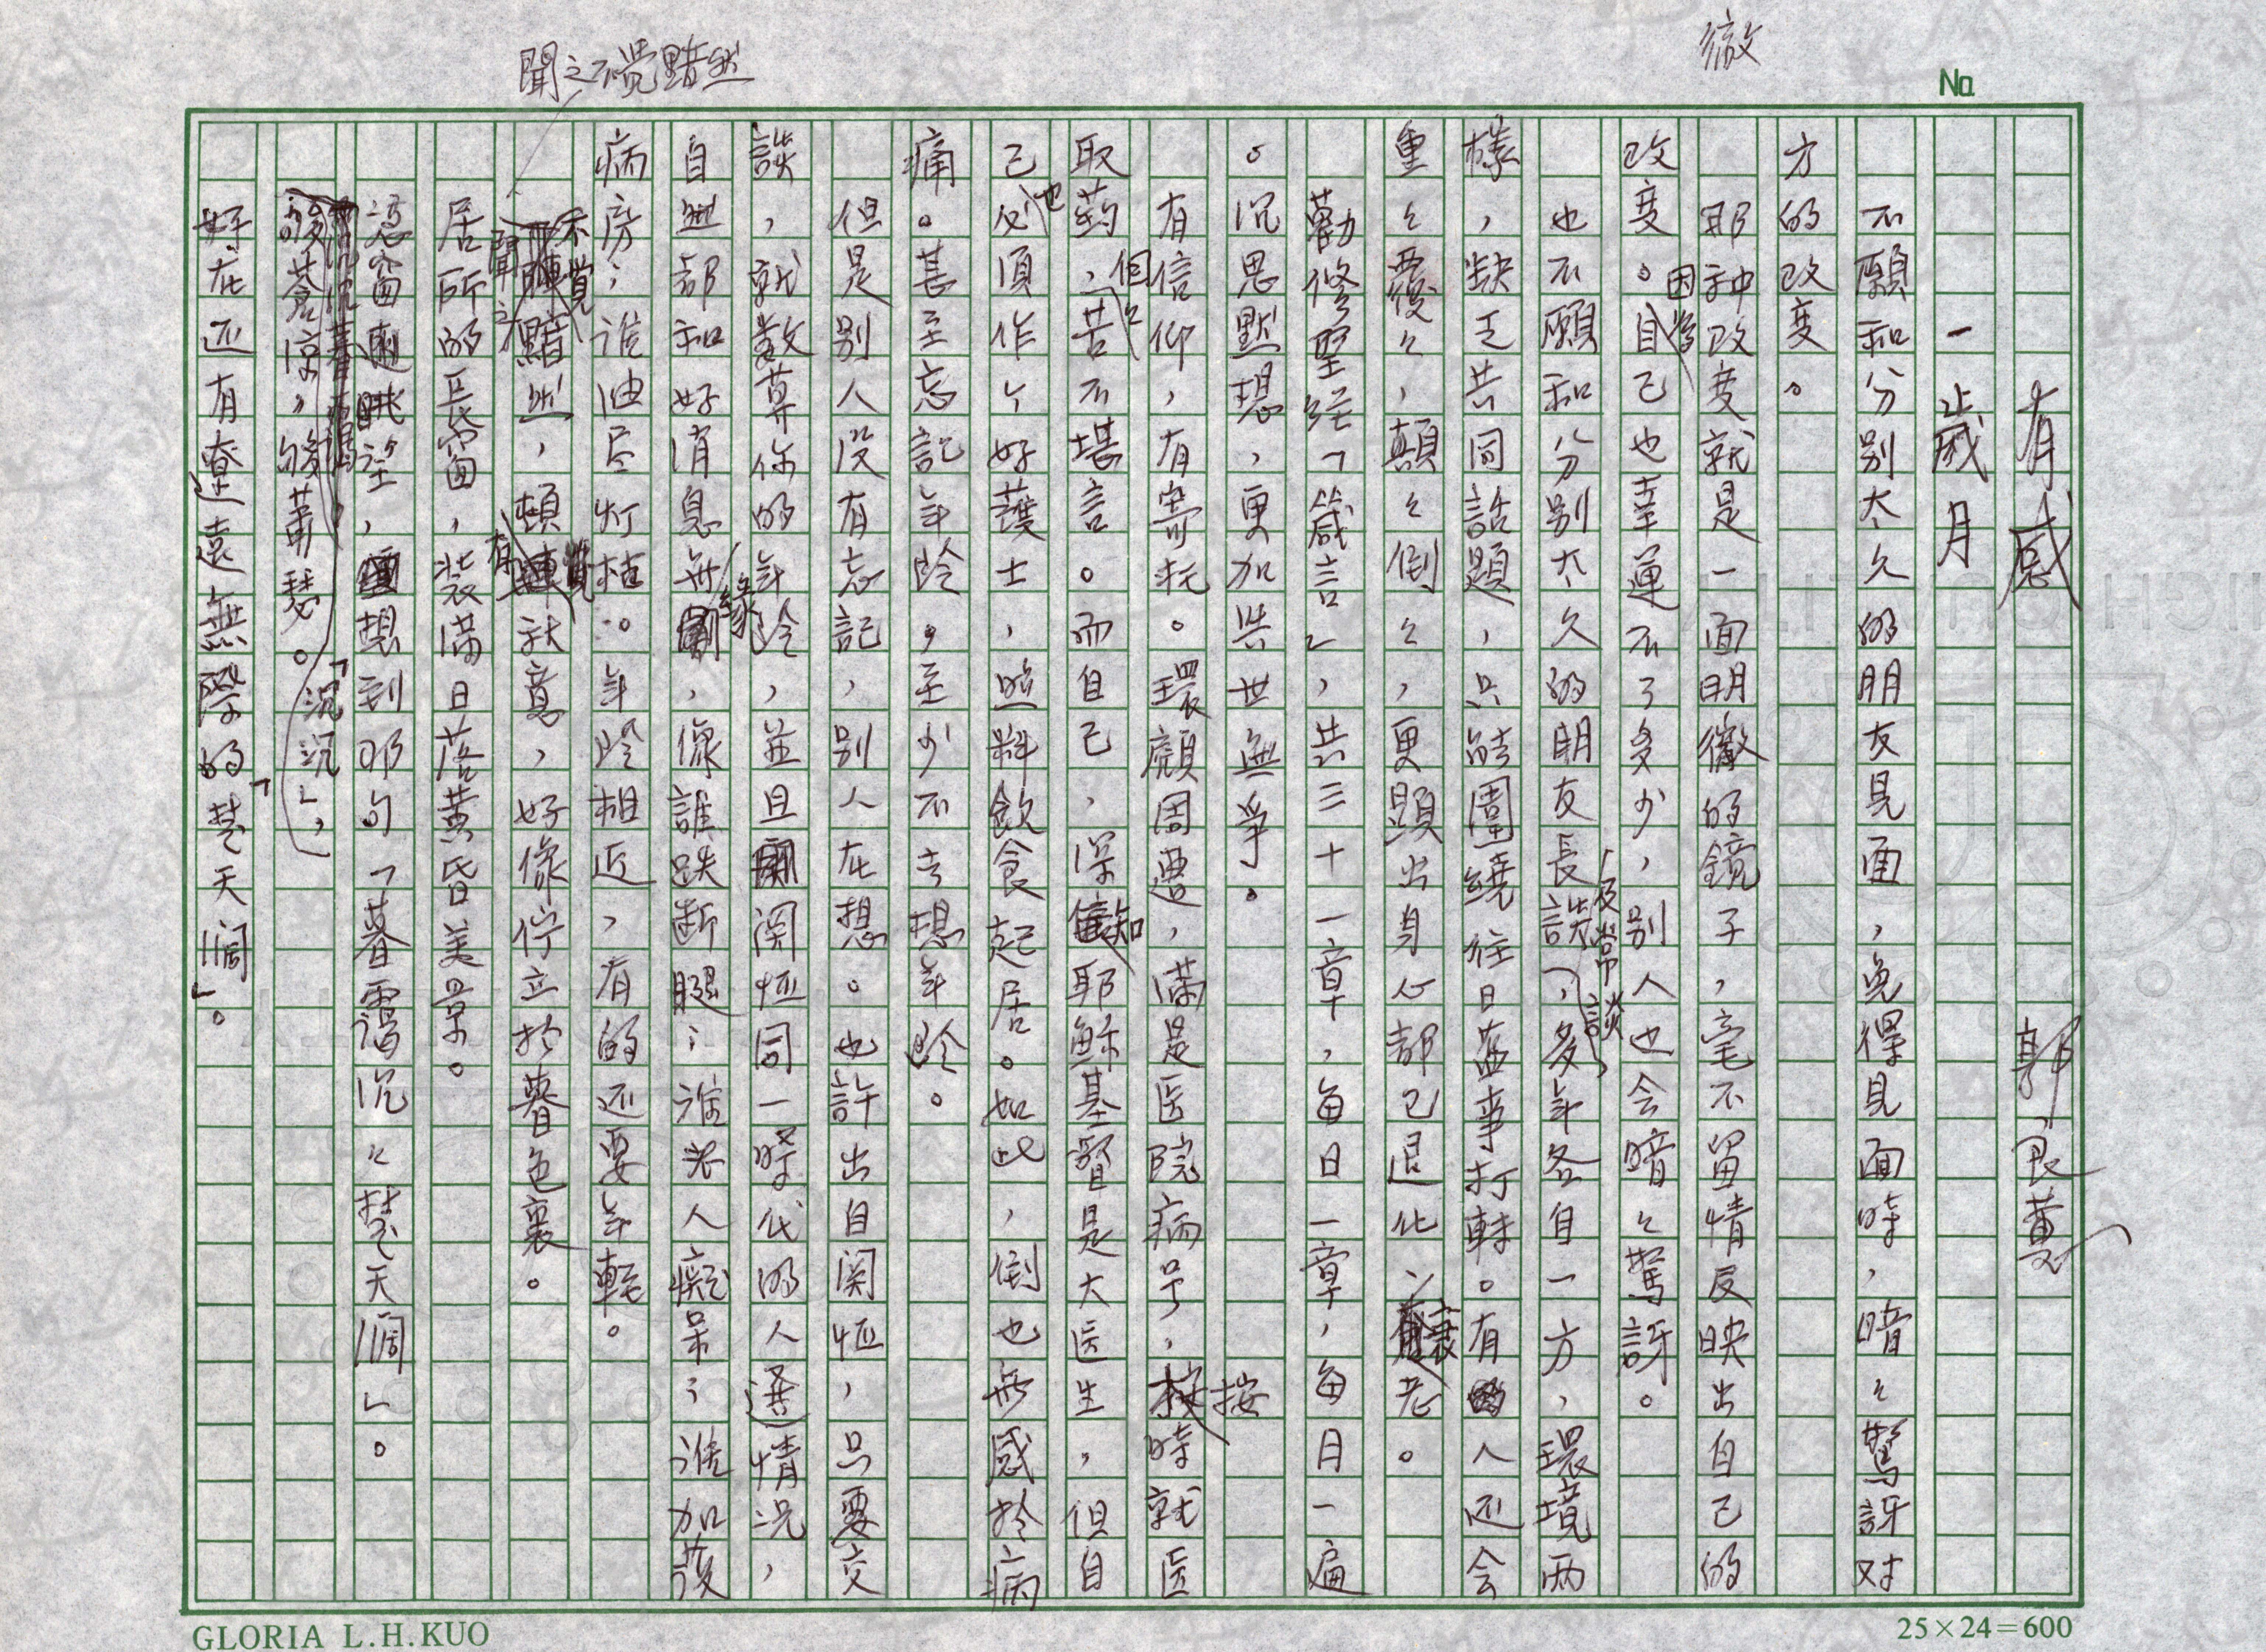 徹
聞之不覺黯然
No.
有感 郭良蕙
一 歲月
不願和分别太久的朋友見面，免得見面時，暗々驚訝对
方的改变。
那种改变就是一面明徹的鏡子，毫不留情反映出自己的
改变。因為自己也幸運不了多少，别人也会暗々驚訝。
也不願和分别太久的朋友長談，多年各自一方，環境兩
及常談
樣，缺乏共同話題，只能圍繞往日舊事打轉。有的人还会
重々覆々，顛々倒々，更顯出身心都已退化：衰老。
勸修聖經「箴言」，共三十一章，每日一章，每月一遍
。沉思默想，更加與世無爭。
有信仰，有寄托。環顧周遭，滿是医院病号，按時就医
取葯，個々苦不堪言。而自己，深知耶穌基督是大医生，但自
己也必須作个好護士，照料飲食起居。如此，倒也無感於病
痛。甚至忘記年龄，至少不去想年龄。
但是别人没有忘記，别人在想。也許出自関恆，只要交
談，就數算你的年龄，並且関恆同一時代的人遭情況，
自然都和好消息無緣，像誰跌断腿；誰老人癡呆；誰加護
病房；誰油尽灯枯。：年龄相近，有的还要年輕。
聞之不覺黯然，頓有秋意，好像佇立於暮色裏。
居所的長窗，裝滿日落黄昏美景。
憑窗眺望，想到那句「暮靄沉々楚天闊」。
「沉沉」，
夠蒼涼，夠蕭瑟。
好在还有遼遠無際的「楚天闊」。
GLORIA L.H.KUO
25×24=600